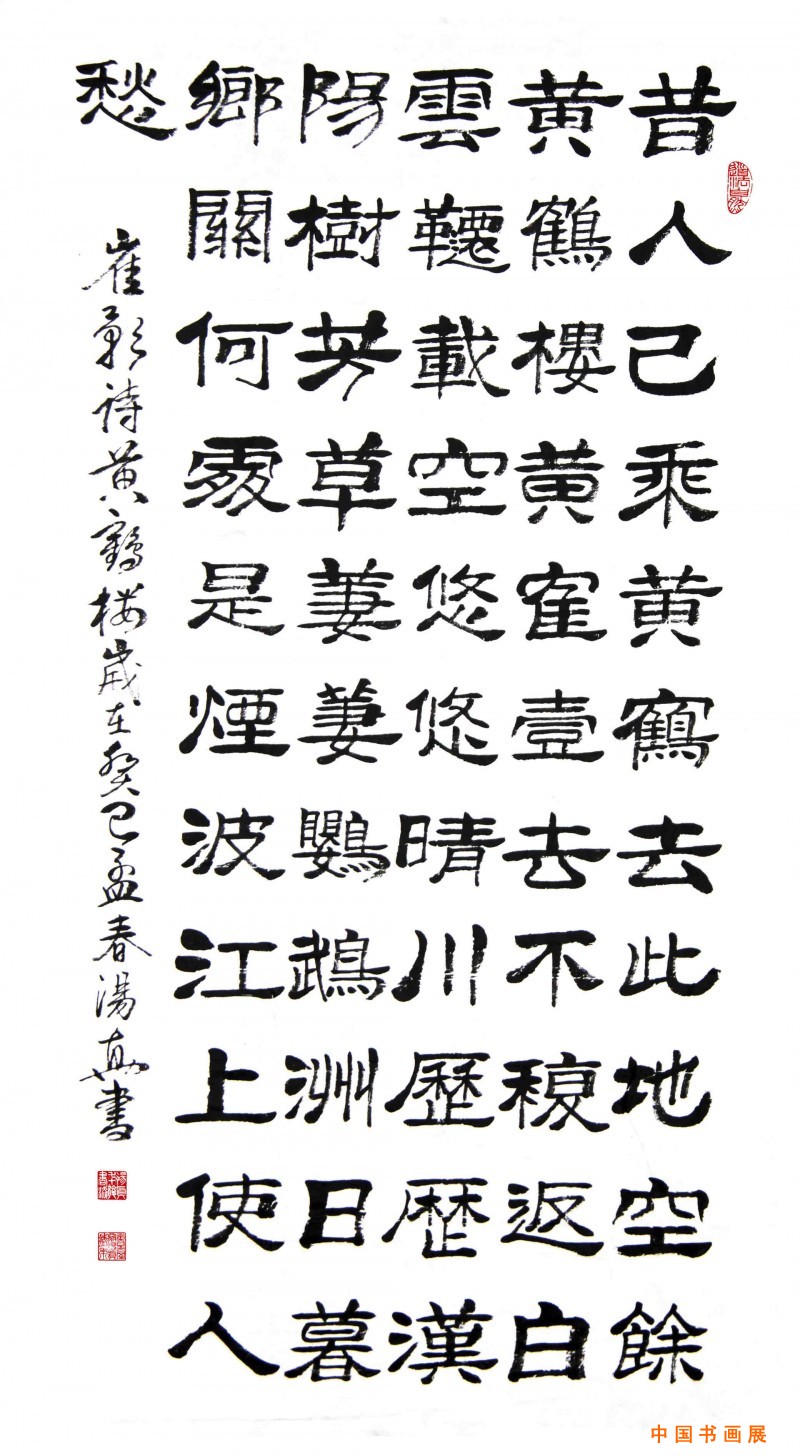 昔人已乘黄鶴去此地空餘
黄鶴樓黄寉壹去不稪返白
雲韆載空悠悠晴川歷歴漢
陽樹芳草萋萋鸚鵡洲日暮
鄉關何處是煙波江上使人
愁
崔颢诗黄鶴楼歲在癸巳孟春湯真書
中国书画展